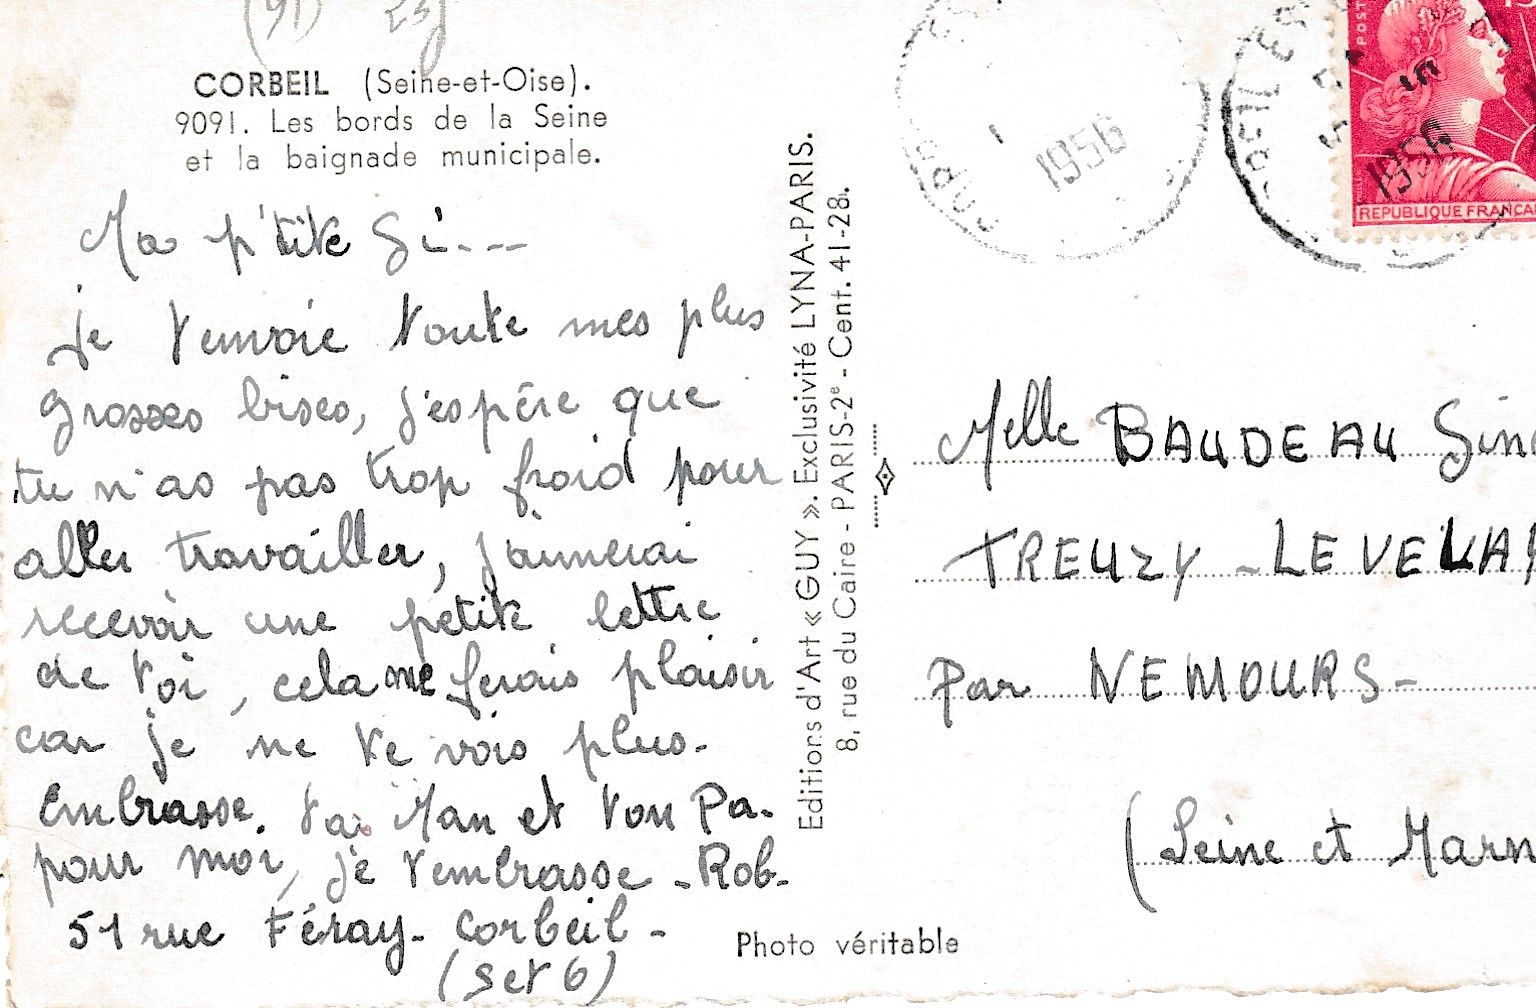 (91)
CORBEIL (Seine-et-Oise).
9091. Les bords de la Seine
et la baignade municipale.
Ma p'tite Gi...
je t'envoie toute mes plus
grosses bises, j'espére que
tu n'as pas trop froid pour
aller travailler, j'aimerai
recevoir une petite lettre
de toi, cela me ferais plaisir
car je ne te vois plus.
Embrasse. ta Man et ton Pa.
pour moi, je t'embrasse - Rob-
51 rue Féray - Corbeil -
(S et 6)
Editions d'Art « GUY ». Exclusivité LYNA-PARIS.
8, rue du Caire - PARIS-2e - Cent. 41-28.
Photo véritable
1956
1956
POST
REPUBLIQUE FRANÇA
Melle BAUDEAU Gin
TREUZY - LEVELAY
Par NEMOURS -
(Seine et Marn